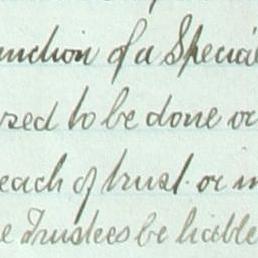 unction of a Special
sed to be done or
each of trust or m
e Trustees be liable